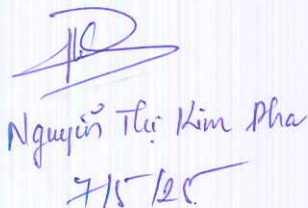 Nguyễn Thị Kim Pha
7/5/25